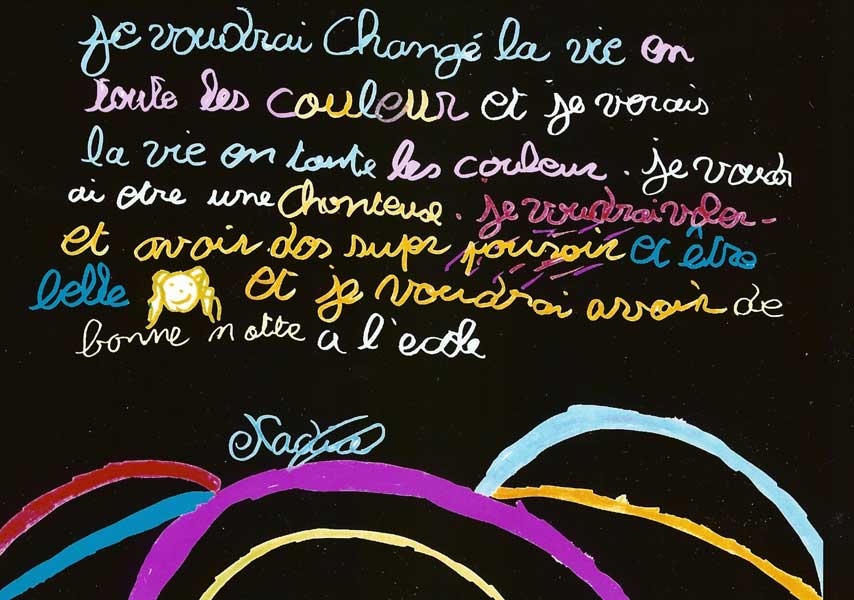 je voudrai changé la vie en
toute les couleur et je verais
la vie en toute les couleur. je voudr
ai etre une chanteuse. je voudrai voler-
et avoir dos supr pouvoir et être
belle et je voudrai avoir de
bonne notte a l'ecole